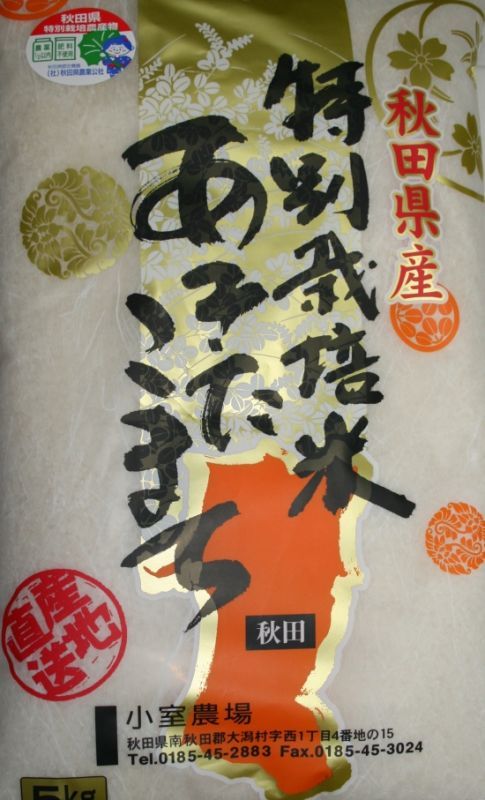 秋田県
特別栽培農産物
農薬
肥料
不使用
(社)秋田県農業公社
秋田県産
特別栽培米
あきたこまち
秋田
産地
直送
小室農場
秋田県南秋田郡大潟村字西1丁目4番地の15
Tel.0185-45-2883 Fax.0185-45-3024
5kg